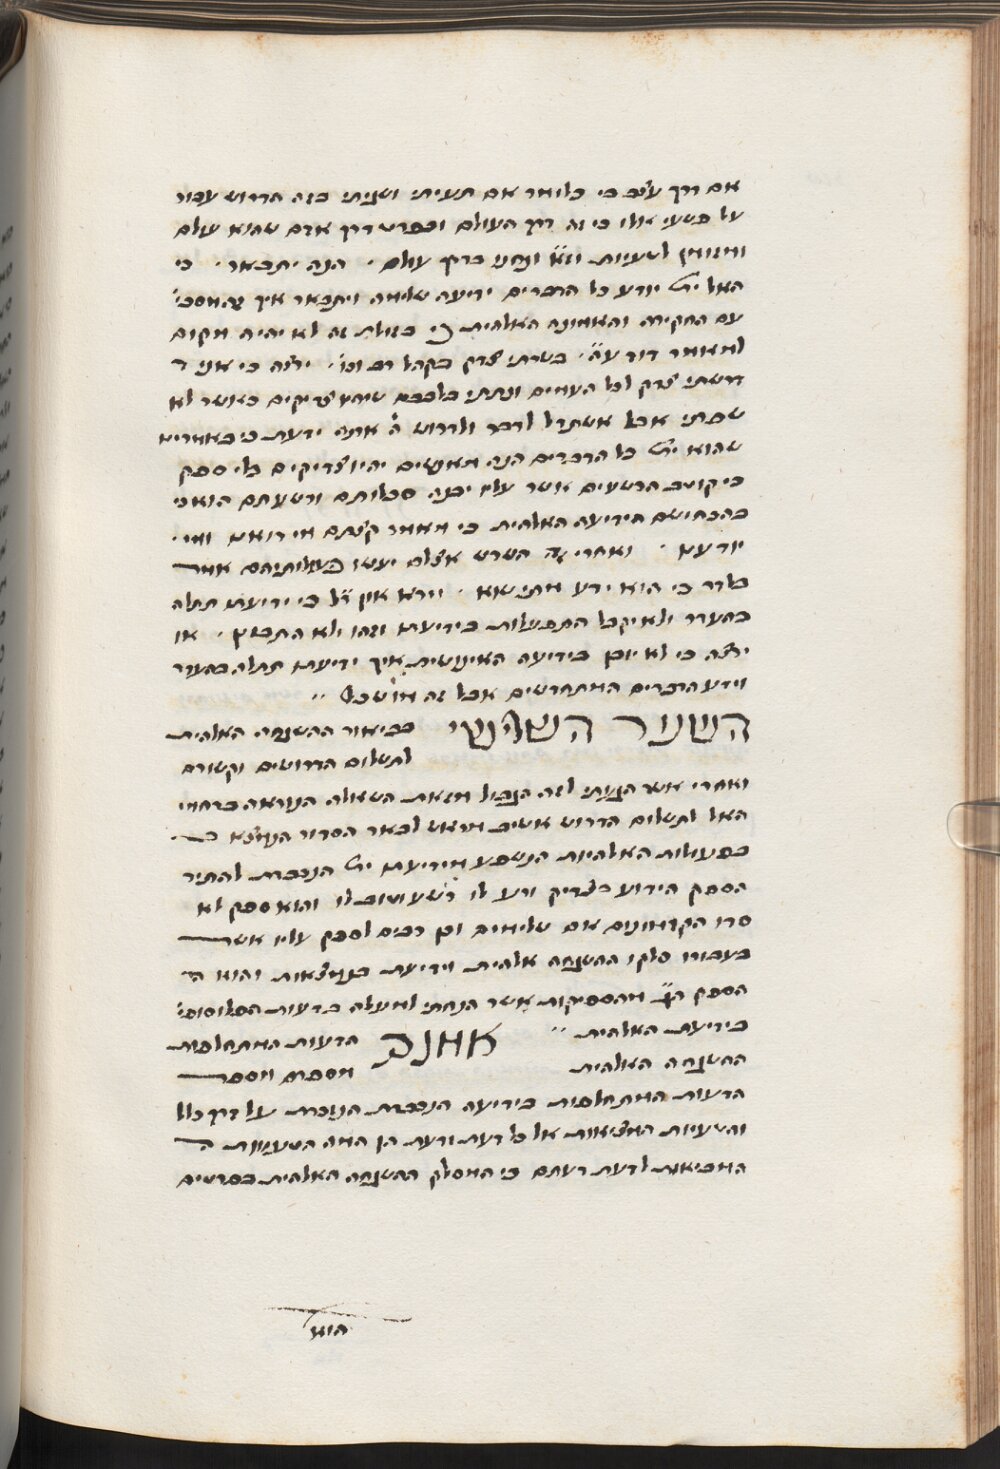 אם דרך עצב כי כלומר אם תעיתי ושגיתי בזה הדרוש עבור
על פשעי אלו כי זה דרך העולם ובפרט דרך אדם שהוא עלול
ומזומן לטעיות ונחני בדרך עולם · הנה יתבאר · כי
האל ית' יודע כל הדברים ידיעה שלימה ויתבאר איך
עם החקירה והאמונה האלהית כי בזולת זה לא יהיה מקום
למאמר דוד ע"ה · בשרתי צדק בקהל רב וכו' · ירצה כי אני
דרשתי צדק לכל העמים ונתתי בלבבם שיהיו צדיקים כאשר לא
אבל אשתדל לדבר ולדרוש ה' אתה ידעת כי באמרי
שהוא ית' כל הדברים הנה האנשים יהיו צדיקים בלי ספק
כי קוטב הרשעים אשר עליו יבנה סכלותם ורשעתם הוא כי
בהכחישם הידיעה האלהית כי מאמר קצתם מי רואנו ומי ·
יודענו · ואחרי זה השרש אצלם יעשו פעולותיהם אמר
כי הוא ידע מתי שוא · וירא און ר"ל כי ידיעתו תתלה
בהעדר ולא יקבל התפעלות בידיעתו וזהו ולא התבונן · או
ירצה כי לא יובן בידיעה האנושית איך ידיעתו תתלה בהעדר
וידע הדברים המתחדשים אבל זה מושכל
השער השלישי בביאור ההשגחה האלהית
לתשלום הדרושים וקשורם
ואחרי אשר הגעתי לזה הגבול מזאת השאלה הנוראה ברחמי
האל לתשלום הדרוש אשוב מראש לבאר הסדור הנמצא
בפעולות האלהיות הנשפע מידיעתו ית' הנכבדת להתיר
הספק הידוע בצדיק ורע לו רשע וטוב לו והוא ספק לא
סרו הקדמונים אם שלימים וכן רבים לספק עליו אשר
בעבורו סלקו ההשגחה אלהית וידיעתו בנמצאות והוא
הספק מהספיקות אשר הנחתי למעלה בדעות הפלוסופי'
בידיעה האלהית אמנם הדעות המתחלפות
ההשגחה האלהית מספרם מספר
הדעות המתחלפות בידיעה הנכבדת הנזכרת על דרך כלל
והטעיות המציאות אל כל דעת ודעת הן המה הטענות
המביאות לדעת דעתם כי המסלק ההשגחה האלהית בפרטים
הוא